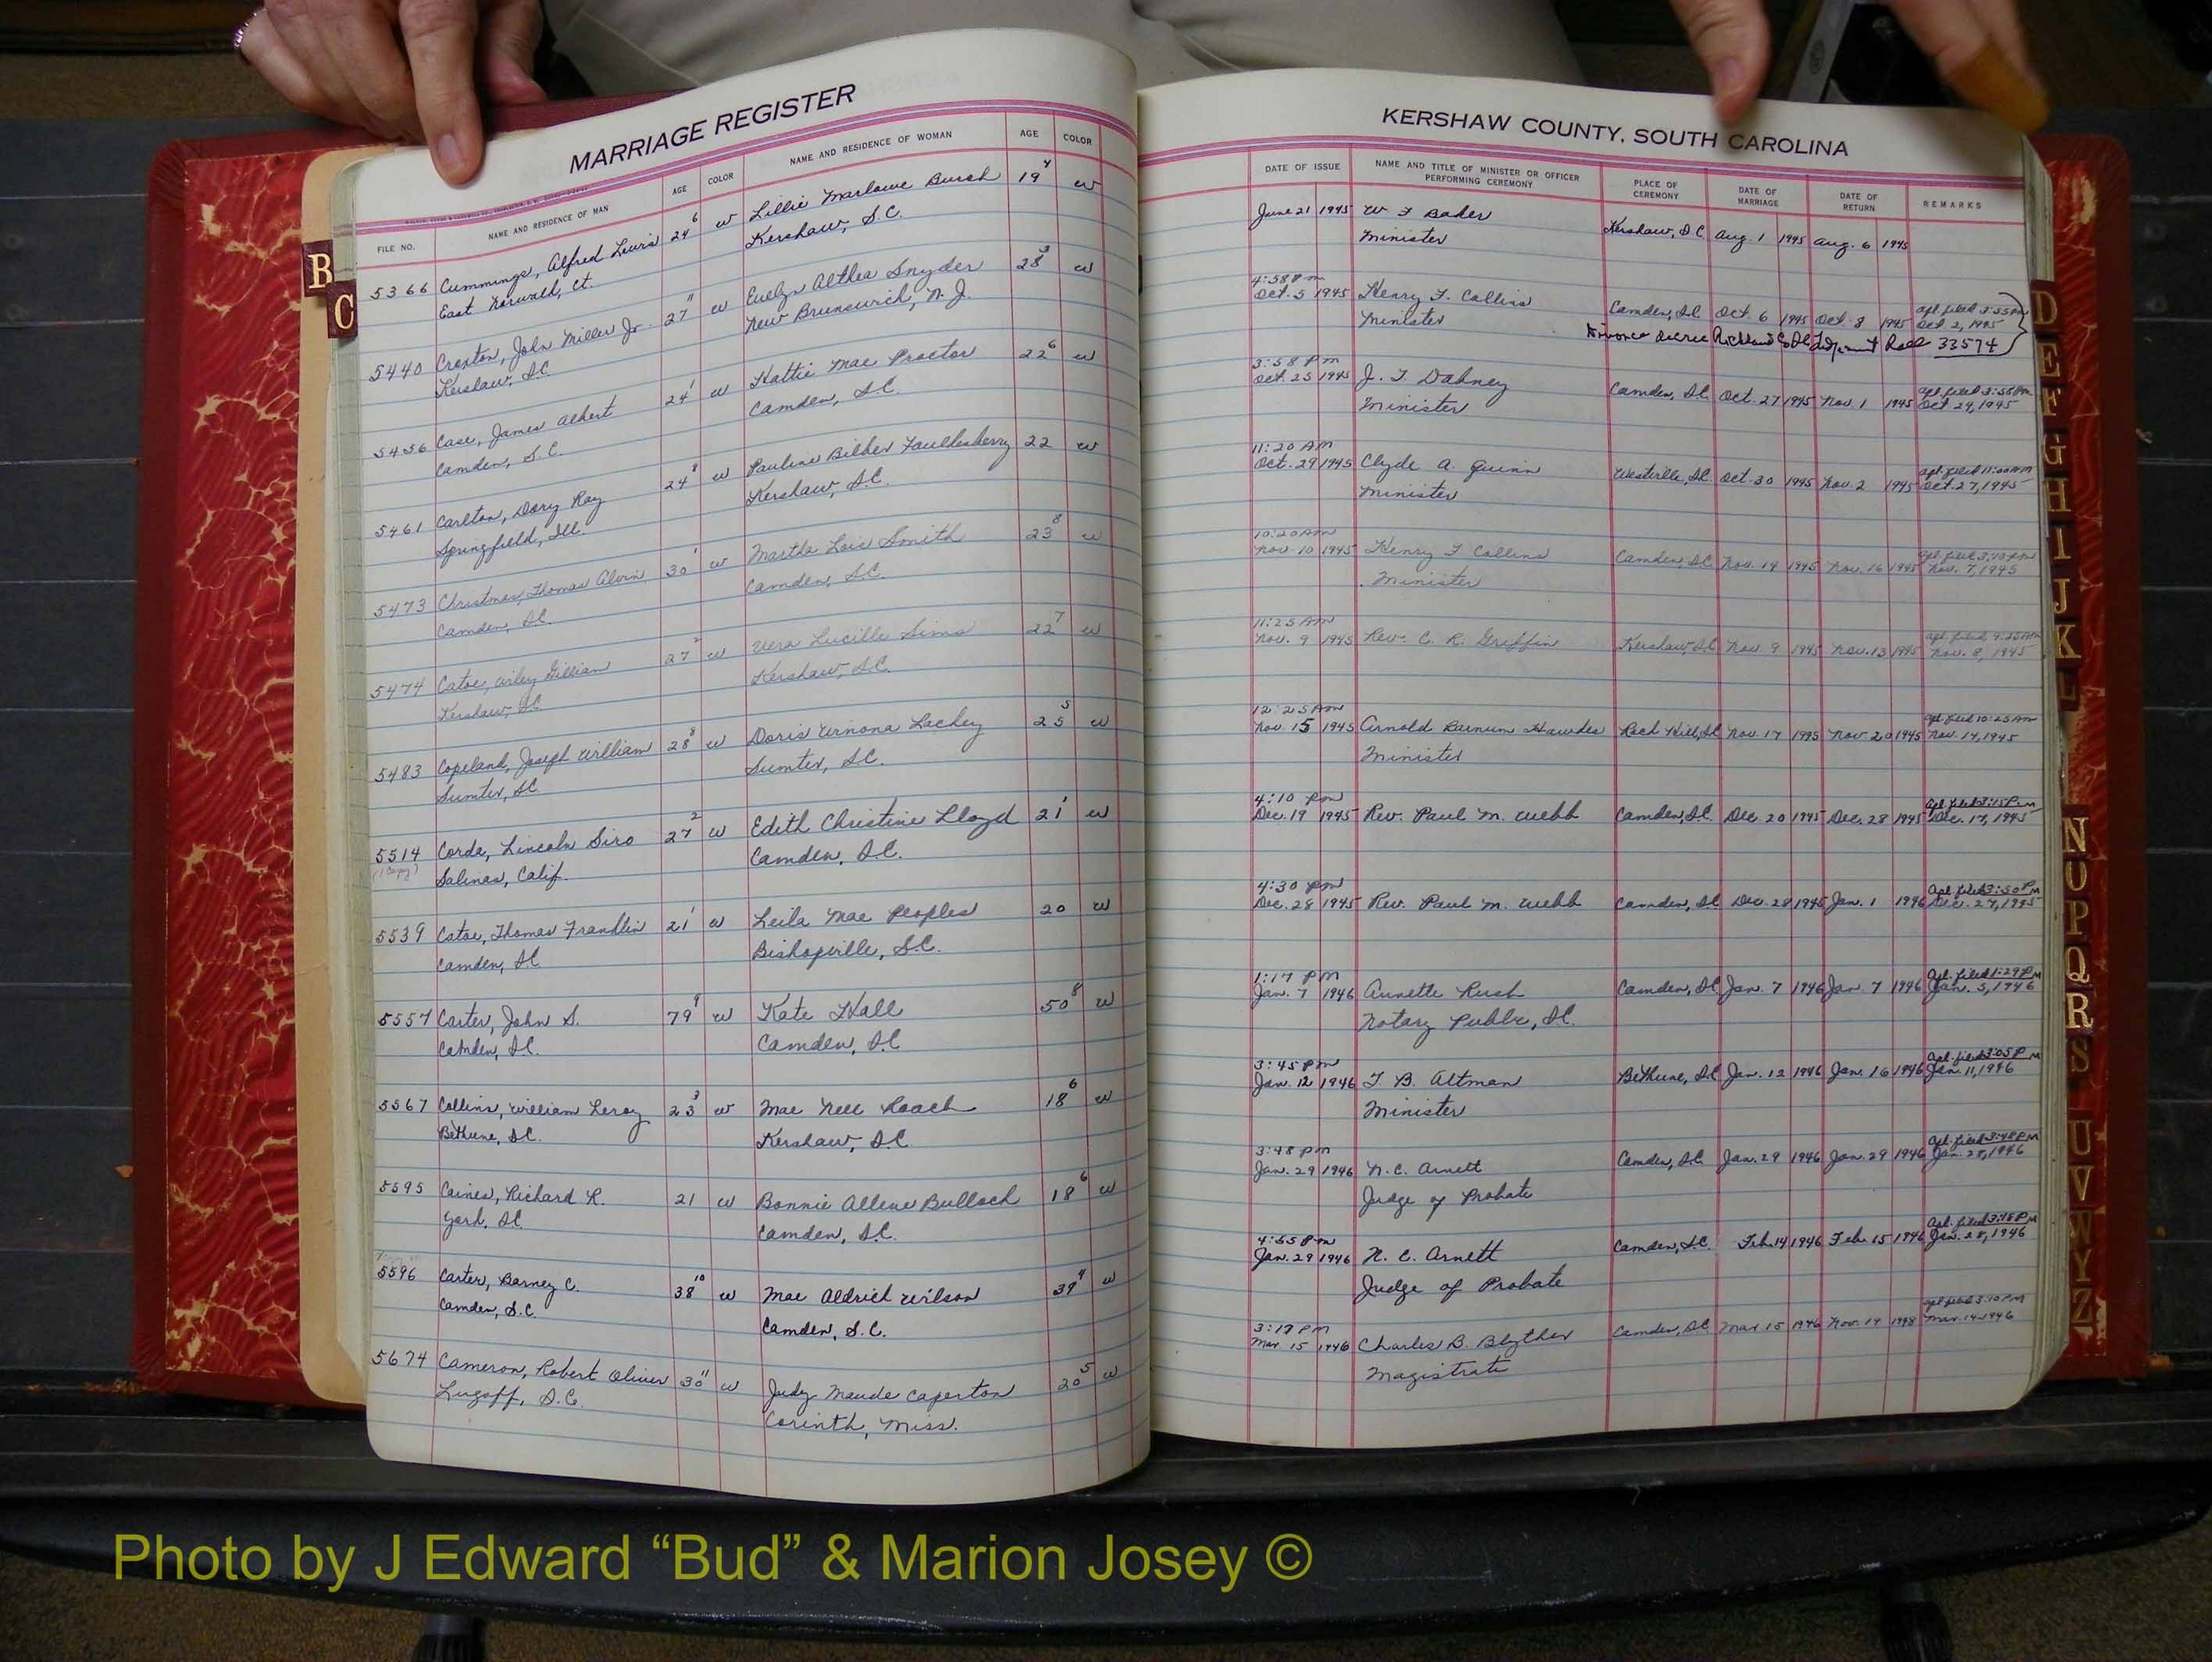 MARRIAGE REGISTER
FILE NO. NAME AND RESIDENCE OF MAN AGE COLOR NAME AND RESIDENCE OF WOMAN AGE COLOR
5366 Cummings, Alfred Lewis 24 6 w Lillie Marlowe Burch 19 4 w
East Norwalk, Ct. Kershaw, S.C.
5440 Croxton, John Miller Jr. 27 11 w Evelyn Althea Snyder 28 3 w
Kershaw, S.C. New Brunswick, N.J.
5456 Case, James Albert 24 1 w Hattie Mae Proctor 22 6 w
Camden, S.C. Camden, S.C.
5461 Carlton, Dory Ray 24 8 w Pauline Bilber Faulkenberry 22 w
Springfield, Ill. Kershaw, S.C.
5473 Christmas, Thomas Alvin 30 1 w Martha Lois Smith 23 8 w
Camden, S.C. Camden, S.C.
5474 Catoe, Wiley Gillian 27 2 w Vera Lucille Sims 22 7 w
Kershaw, S.C. Kershaw, S.C.
5483 Copeland, Joseph William 28 8 w Doris Winona Lackey 25 5 w
Sumter, S.C. Sumter, S.C.
5514 Corda, Lincoln Siro 27 2 w Edith Christine Lloyd 21 1 w
(1 Copy) Salinas, Calif. Camden, S.C.
5539 Catoe, Thomas Franklin 21 1 w Leila Mae Peoples 20 w
Camden, S.C. Bishopville, S.C.
5557 Carter, John S. 79 9 w Kate Hall 50 8 w
Camden, S.C. Camden, S.C.
5567 Collins, William Leroy 23 3 w Mae Nell Roach 18 6 w
Bethune, S.C. Kershaw, S.C.
5595 Caines, Richard R. 21 w Bonnie Allene Bullock 18 6 w
York, S.C. Camden, S.C.
5596 Carter, Barney C. 38 10 w Mae Aldrich Wilson 39 4 w
Camden, S.C. Camden, S.C.
5674 Cameron, Robert Oliver 30 11 w Judy Maude Caperton 20 5 w
Lugoff, S.C. Corinth, Miss.
KERSHAW COUNTY, SOUTH CAROLINA
DATE OF ISSUE NAME AND TITLE OF MINISTER OR OFFICER PERFORMING CEREMONY PLACE OF CEREMONY DATE OF MARRIAGE DATE OF RETURN REMARKS
June 21 1945 W F Baker Kershaw, S.C. Aug. 1 1945 Aug. 6 1945
Minister
4:58 Pm apl. filed 3:55 Pm
Oct. 5 1945 Henry F. Collins Camden, S.C. Oct. 6 1945 Oct. 8 1945 Oct. 2, 1945
Minister Divorce decree Richland Co SC Judgment Roll 33574
3:58 Pm apl. filed 3:55 Pm
Oct. 25 1945 J. T. Dabney Camden, S.C. Oct. 27 1945 Nov. 1 1945 Oct. 24, 1945
Minister
11:20 AM apl. filed 11:00 AM
Oct. 29 1945 Clyde A. Quinn Westville, S.C. Oct. 30 1945 Nov. 2 1945 Oct. 27, 1945
Minister
10:20 AM apl. filed 3:40 Pm
Nov. 10 1945 Henry F Collins Camden, S.C. Nov. 14 1945 Nov. 16 1945 Nov. 7, 1945
Minister
11:25 AM apl. filed 9:25 AM
Nov. 9 1945 Rev. C. R. Griffin Kershaw, S.C. Nov. 9 1945 Nov. 13 1945 Nov. 8, 1945
12:25 apl. filed 10:25 Am
Nov. 15 1945 Arnold Barnum Hawkes Rock Hill, S.C. Nov. 17 1945 Nov. 20 1945 Nov. 14, 1945
Minister
4:10 Pm Apl. filed 3:15 P.M
Dec. 19 1945 Rev. Paul M. Webb Camden, S.C. Dec. 20 1945 Dec. 28 1945 Dec. 17, 1945
4:30 Pm Apl. filed 3:50 PM
Dec. 28 1945 Rev. Paul M. Webb Camden, S.C. Dec. 28 1945 Jan. 1 1946 Dec. 27, 1945
1:17 Pm Apl. filed 1:29 PM
Jan. 7 1946 Annette Rush Camden, S.C. Jan. 7 1946 Jan. 7 1946 Jan. 5, 1946
Notary Public, S.C.
3:45 Pm Apl. filed 3:05 PM
Jan. 12 1946 T. B. Altman Bethune, S.C. Jan. 12 1946 Jan. 16 1946 Jan. 11, 1946
Minister
3:48 Pm Apl. filed 3:48 PM
Jan. 29 1946 N. C. Arnett Camden, S.C. Jan. 29 1946 Jan. 29 1946 Jan. 28, 1946
Judge of Probate
4:55 Pm Apl. filed 3:48 PM
Jan. 29 1946 N. C. Arnett Camden, S.C. Feb. 14 1946 Feb. 15 1946 Jan. 28, 1946
Judge of Probate
3:19 Pm apl filed 3:10 PM
Mar. 15 1946 Charles B. Blyther Camden, S.C. Mar. 15 1946 Nov. 19 1948 Mar. 14 1946
Magistrate
B
C
D
E
F
G
H
I
J
K
L
N
O
P
Q
R
S
U
V
W
Y
Z
Photo by J Edward “Bud” & Marion Josey ©